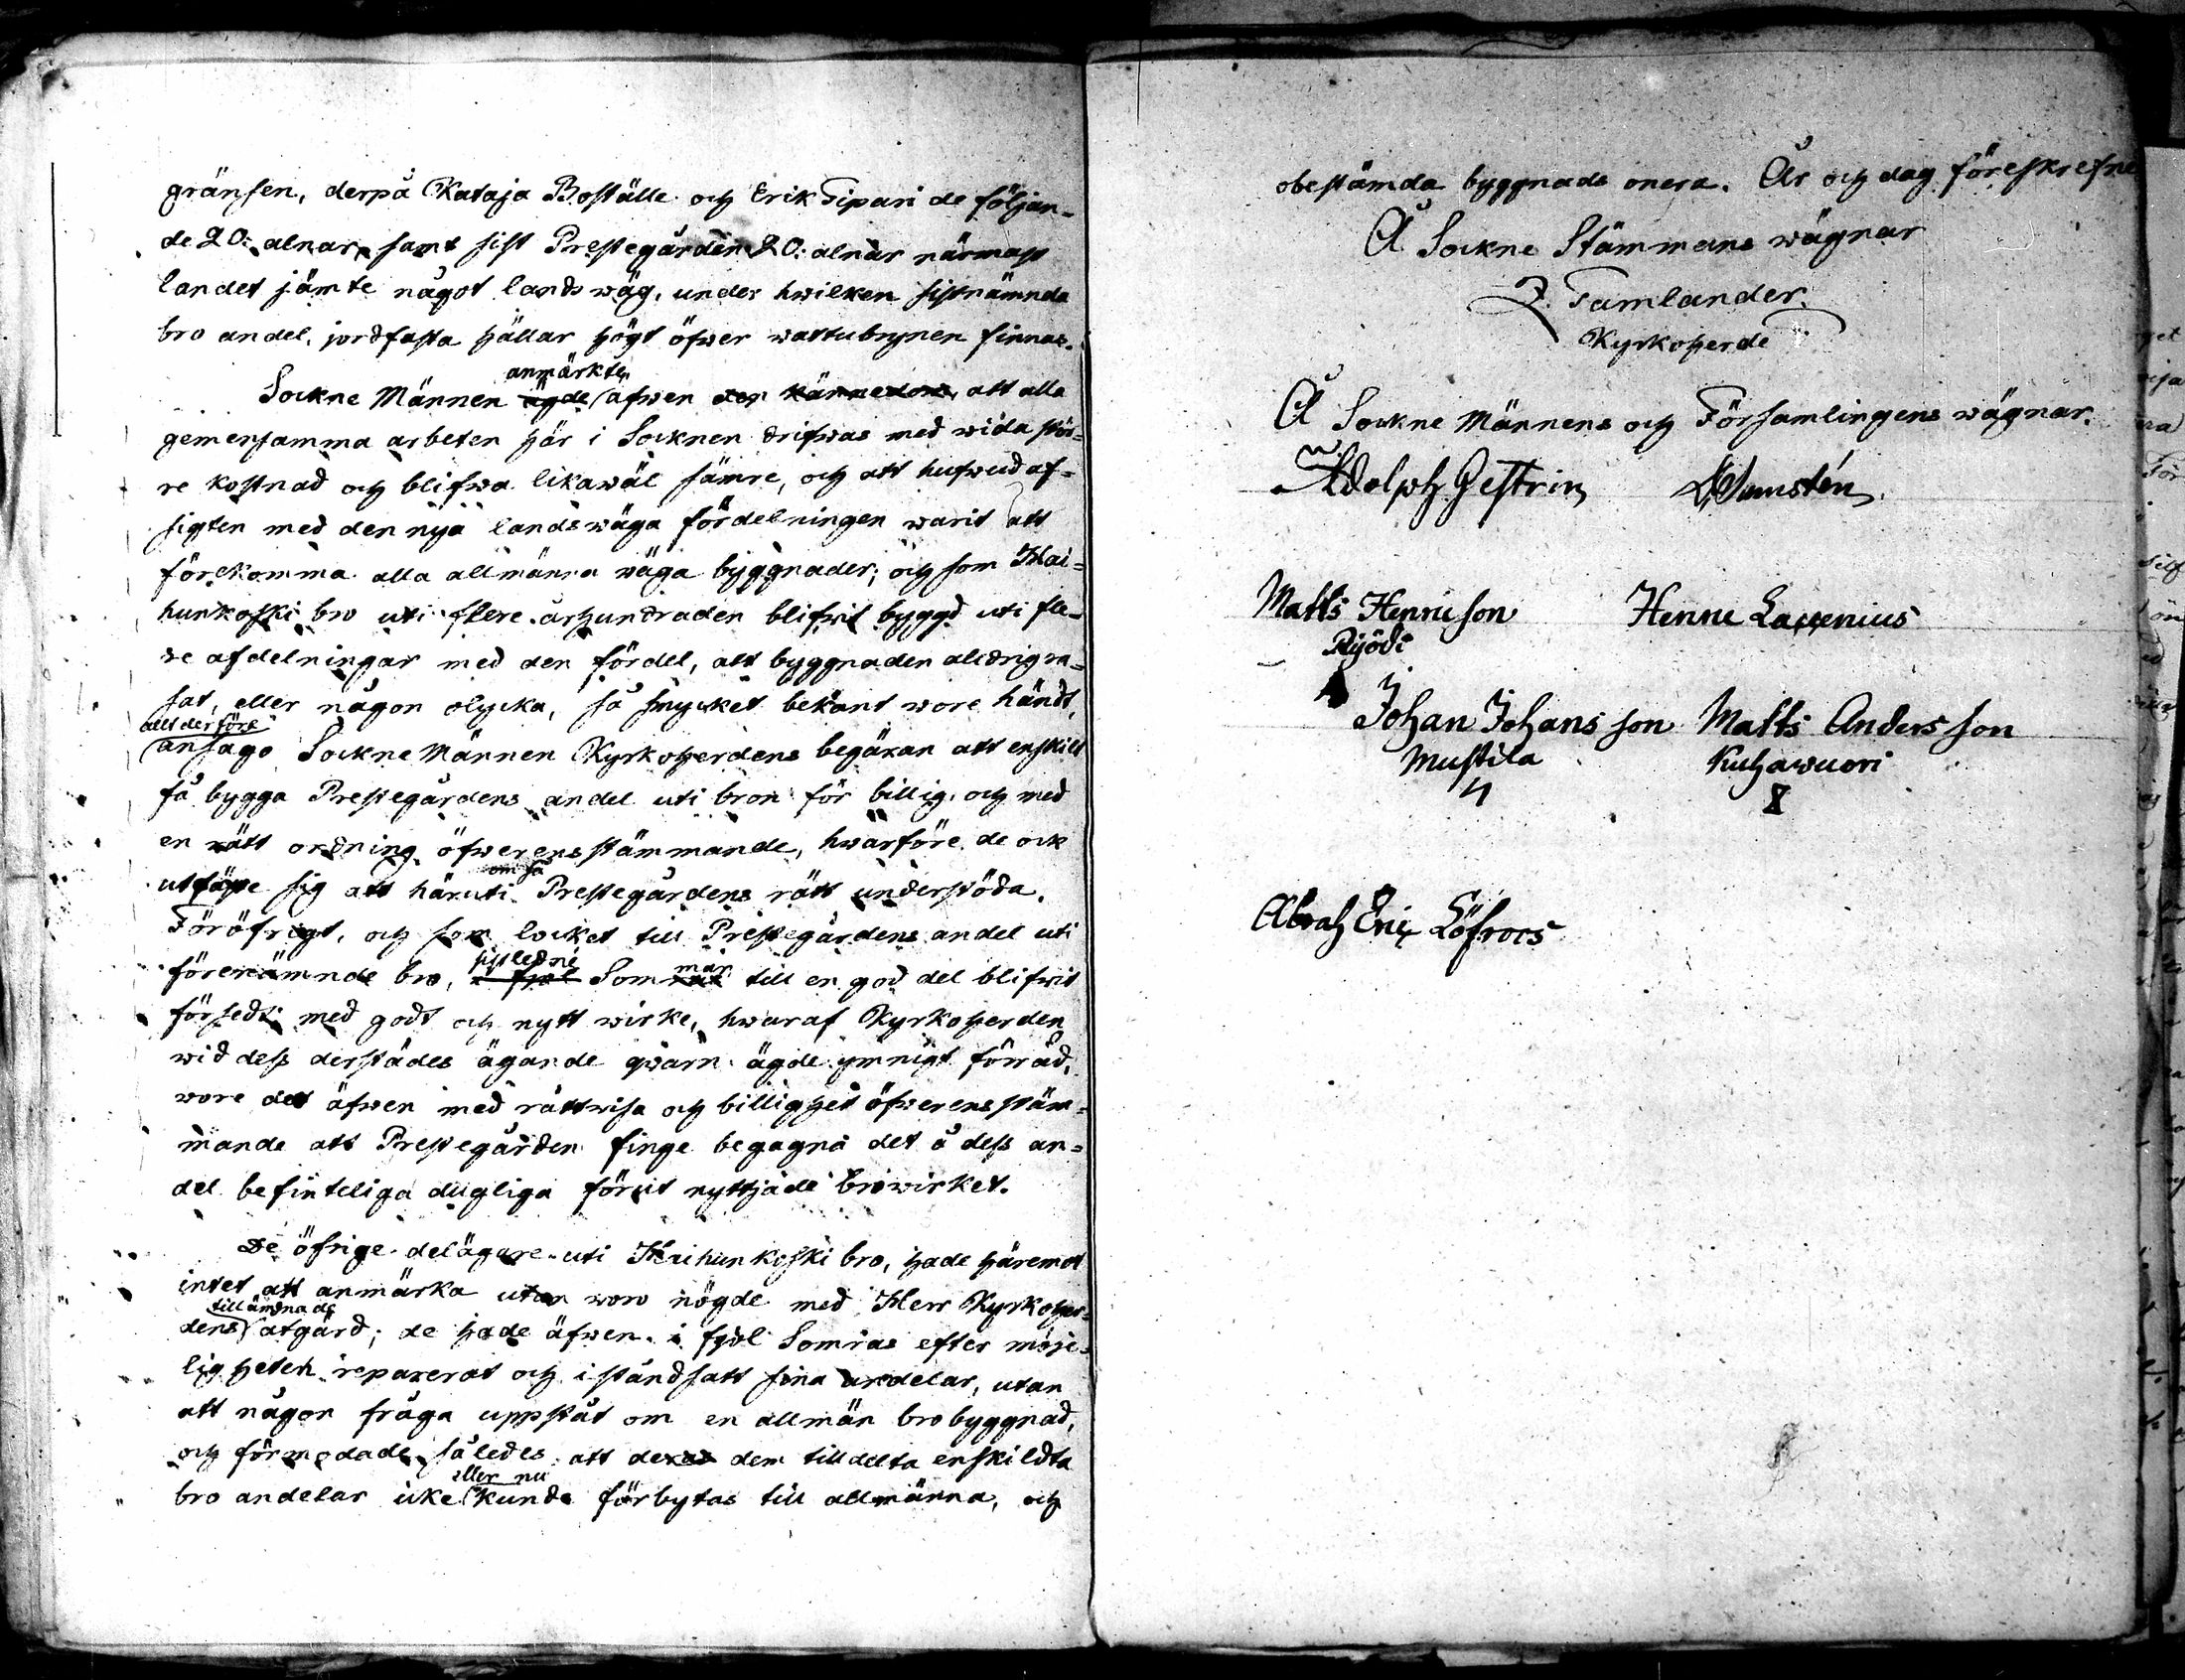 gränsen, derpå Kataja Boställe och Erik Sipari de följan-
de 20. alnar, samt sist Prestegården 20. alnar närmast
landet jämte något landswäg, under hwilken sistnämnda
bro andel, jordfasta hällar högt öfwer wattubrynen finnas.
anmärkte
Sockne Männen ägde äfwen att alla
gemensamma arbeten här i Socknen drifwas med wida stör-
re kostnad och blifwa likawäl sämre, och att hufwudaf-
sigten med den nya landswäga fördelningen warit att
förekomma alla allmänna wäga byggnader; och som Hai-
hunkoski bro uti flere århundraden blifwit byggd uti fle-
re afdelningar med den fördel, att byggnaden aldrig ra-
sat, eller någon olycka, så mycket bekant wore händt,
allt derföre
ansågo Sockne Männen Kyrkoherdens begäran att enskilt
få bygga Prestegårdens andel uti bron för billig, och med
en rätt ordning öfwerensstämmande, hwarföre de ock
om så
utfäste sig att häruti Prestegårdens rätt understöda.
Föröfrigt, och som locket till Prestegårdens andel uti
sistledne mar
förenämnde bro, i fjol Somras till en god del blifwit
försedt med godt och nytt wirke, hwaraf Kyrkoherden
wid dess derstädes ägande qwarn ägde ymnigt förråd,
wore det äfwen med rättwisa och billighet öfwerensstäm-
mande att Prestegården finge begagna det å dess an-
del befinteliga dugliga förut nyttjade browirket.
De öfrige delägare uti Haihunkoski bro, hade häremot
intet att anmärka utan woro nögde med Herr Kyrkoher-
tillämnade
dens åtgärd; de hade äfwen i fjol Somras efter möje-
ligheten reparerat och i ståndsatt sina andelar, utan
att någon fråga uppstått om en allmän brobyggnad,
och förmodade således att deras dem tilldelta enskildta
eller nu
bro andelar icke kunde förbytas till allmänna, och
obestämda byggnads onera. År och dag föreskrefne
Å Sockne Stämmans wägnar
Z. Tamlander.
Kyrkoherde
Å Sockne Männens och Församlingens wägnar.
Adolph Gestrin
Matts Henricson Henric Laurenius
Pyödi
Johan Johansson Matts Andersson
Mustila Kuhawuori
Abrah Eric Löfroos